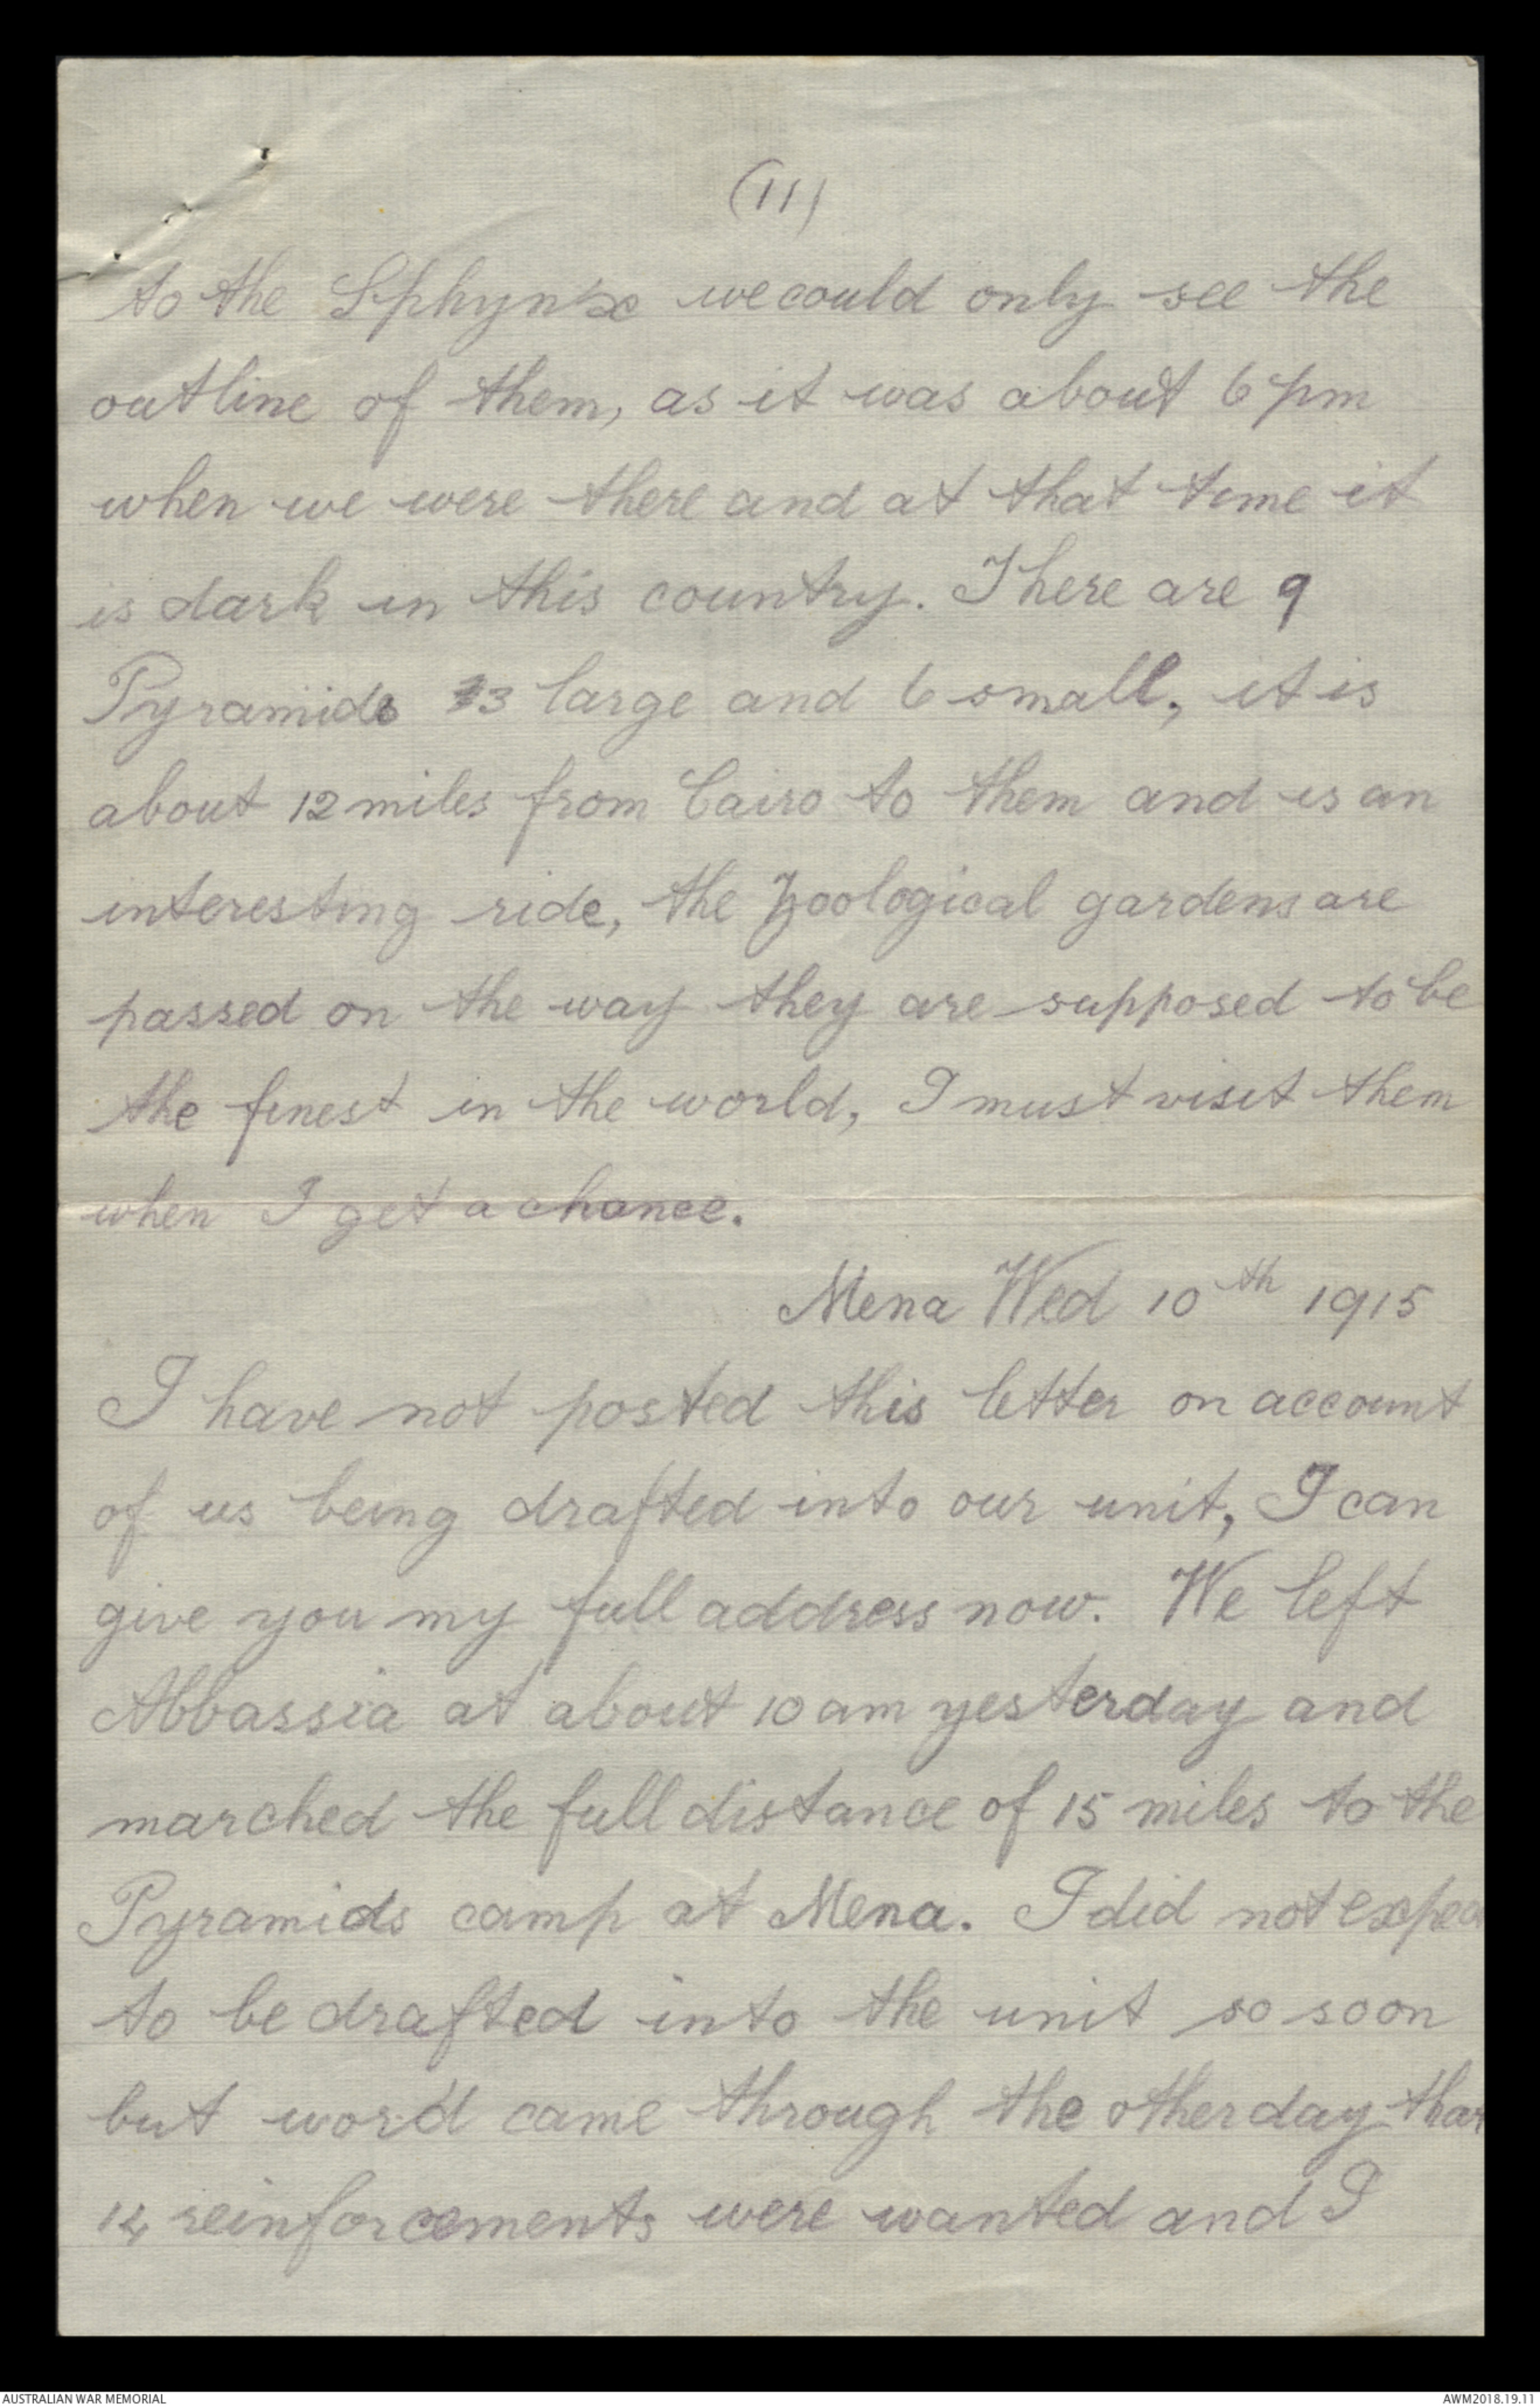 (11)
to the Sphynx we could only see the
outline of them, as it was about 6 pm
when we were there and at that time it
is dark in this country. There are 9
Pyramids 3 large and 6 small, it is
about 12 miles from Cairo to them and is an
interesting ride, the Zoological gardens are
passed on the way they are supposed to be
the finest in the world, I must visit them
when I get a chance.
Mena Wed 10th 1915
I have not posted this letter on account
of us being drafted into our unit, I can
give you my full address now. We left
Abbassia at about 10 am yesterday and
marched the full distance of 15 miles to the
Pyramids camp at Mena. I did not expec
to be drafted into the unit so soon
but word came through the other day that
14 reinforcements were wanted and I
AUSTRALIAN WAR MEMORIAL
AWM2018.19.11